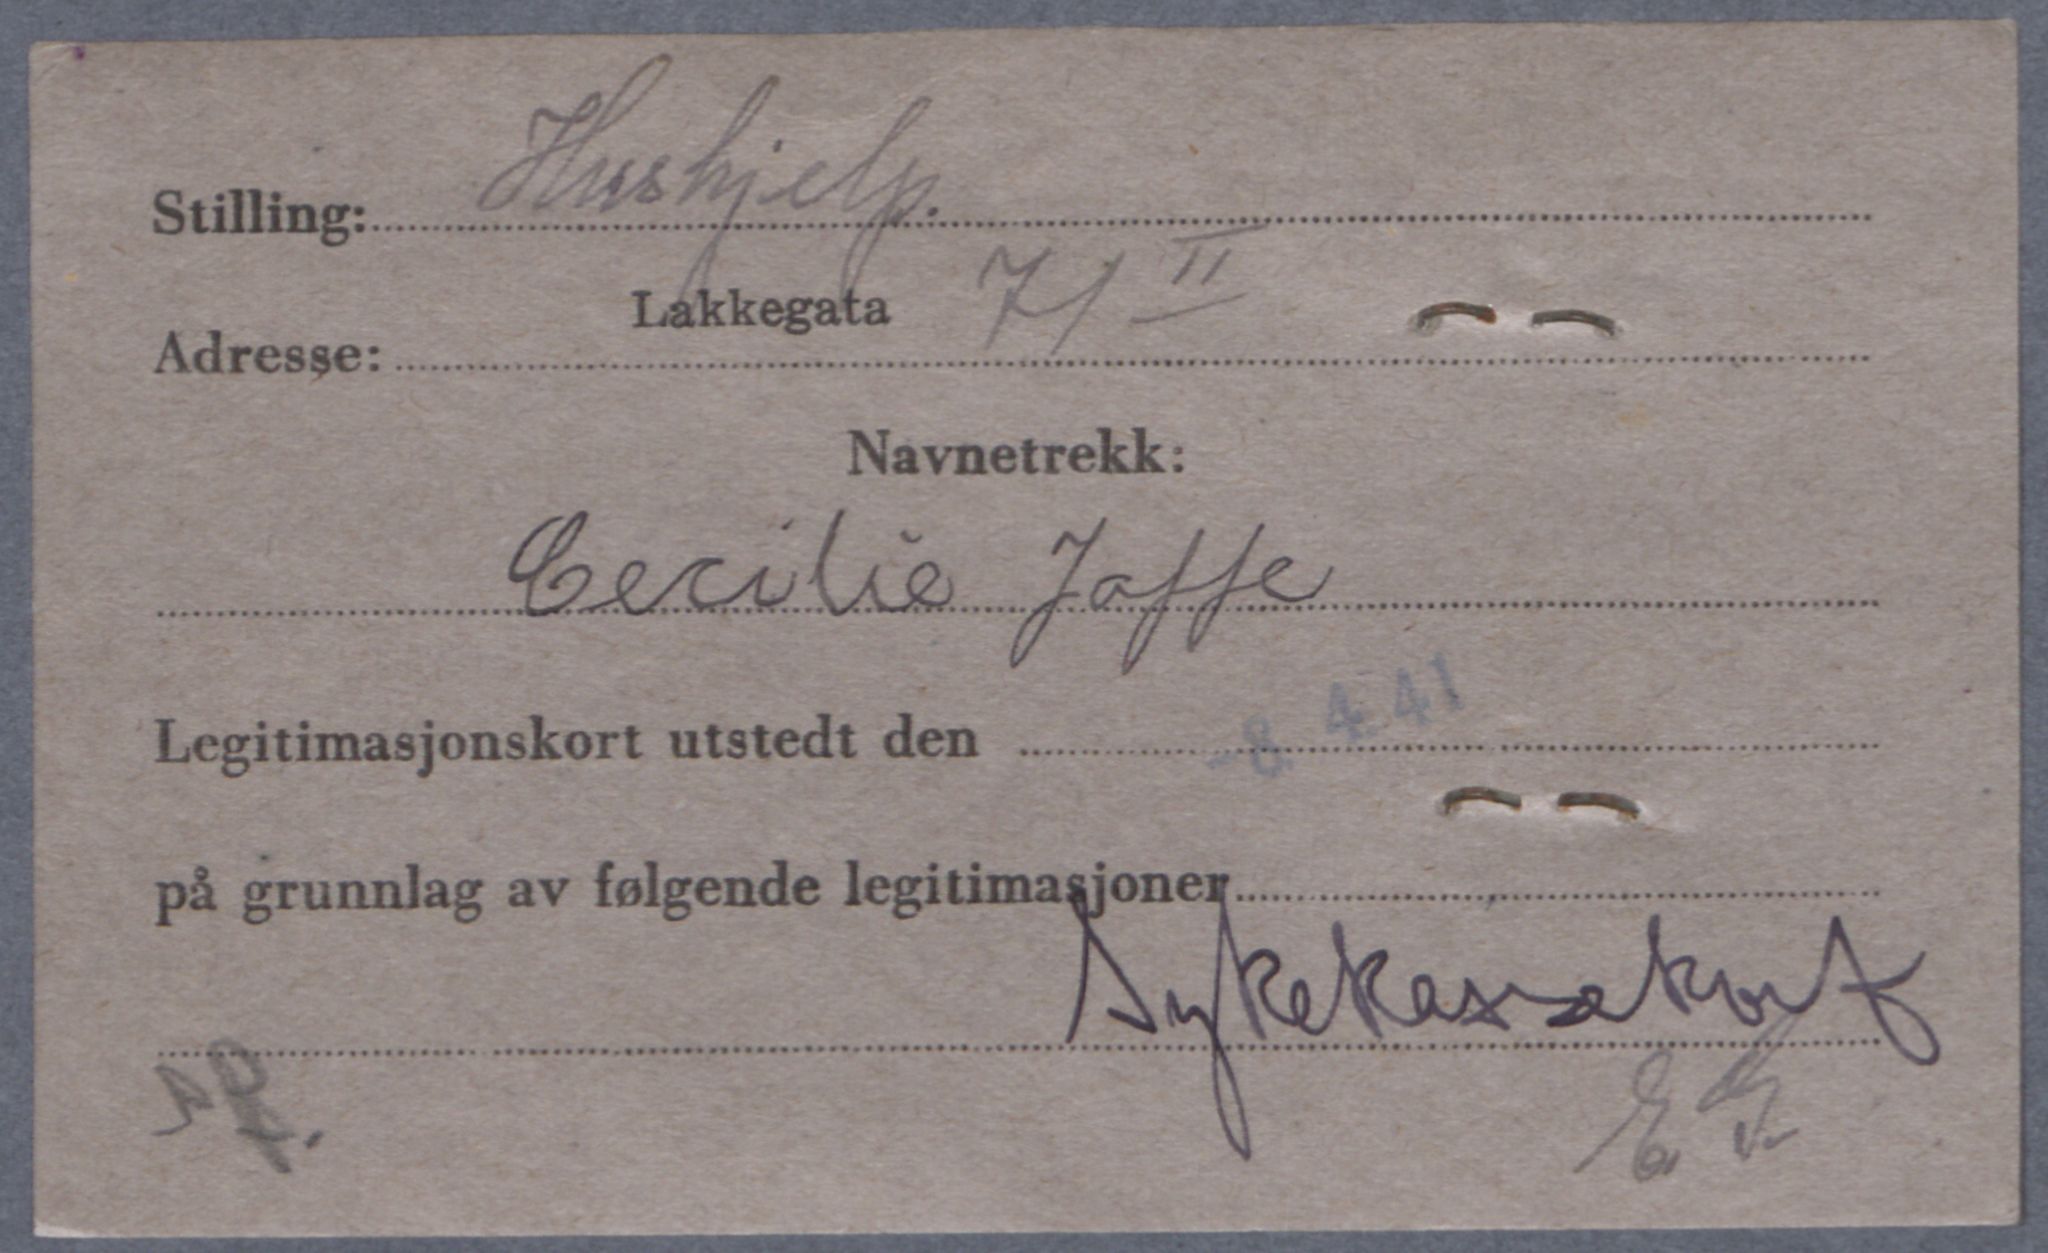 Stilling: Hushjelp.
Adresse: Lakkegata 71 II
Navnetrekk:
Cecilie Jaffe
Legitimasjonskort utstedt den -8. 4. 41
på grunnlag av følgende legitimasjoner
Sykekassekort